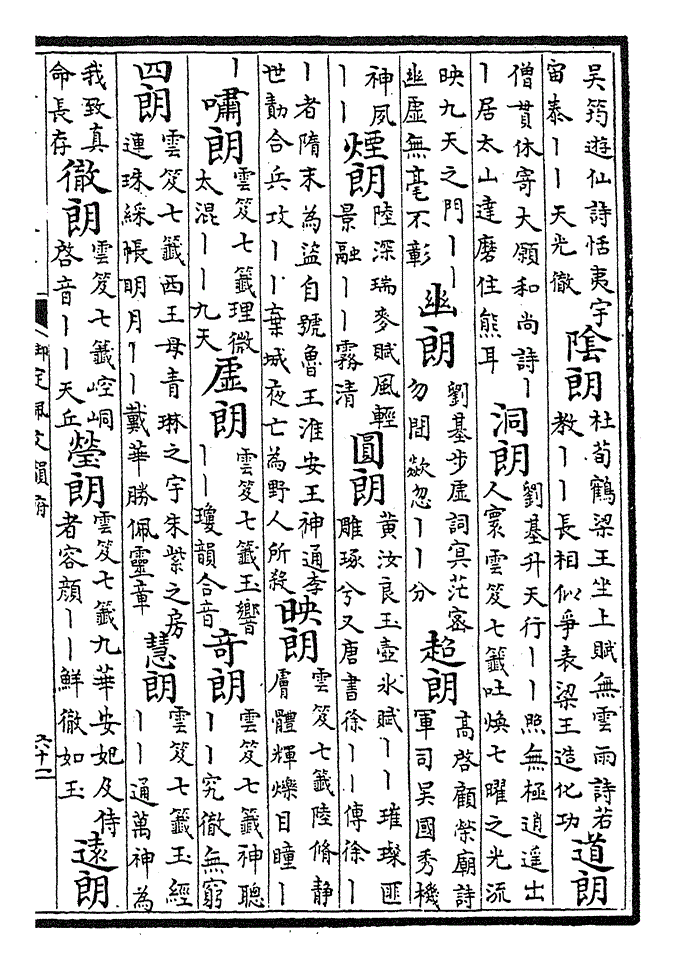 吳筠遊仙詩恬夷宇
宙泰丨丨天光徹
陰朗
杜荀鶴梁王坐上賦無雲雨詩若
教丨丨長相似爭表梁王造化功
道朗
僧貫休寄大願和尚詩丨
丨居太山達磨住熊耳
洞朗
劉基升天行丨丨照無極逍遥出
人寰雲笈七籤吐煥七曜之光流
映九天之門丨丨
幽虛無毫不彰
幽朗
劉基步虛詞冥茫宻
勿間歘忽丨丨分
超朗
高啓顧榮廟詩
軍司吳國秀機
神夙
丨丨
煙朗
陸深瑞麥賦風輕
景融丨丨霧清
圓朗
黃汝良玉壺冰賦丨丨璀璨匪
雕琢兮又唐書徐丨丨傳徐丨
丨者隋末為盜自號魯王淮安王神通李
世勣合兵攻丨丨棄城夜亡為野人所殺
映朗
雲笈七籤陸脩静
膚體輝爍目瞳丨
丨
嘯朗
雲笈七籤理微
太混丨丨九天
虛朗
雲笈七籤玉響
丨丨瓊韻合音
奇朗
雲笈七籤神聰
丨丨究徹無窮
四朗
雲笈七籤西王母青琳之宇朱紫之房
連珠綵帳明月丨丨戴華勝佩靈章
慧朗
雲笈七籤玉經
丨丨通萬神為
我致真
命長存
徹朗
雲笈七籤崆峒
啓音丨丨天丘
瑩朗
雲笈七籤九華安妃及侍
者容顔丨丨鮮徹如玉
遠朗
御定佩文韻府